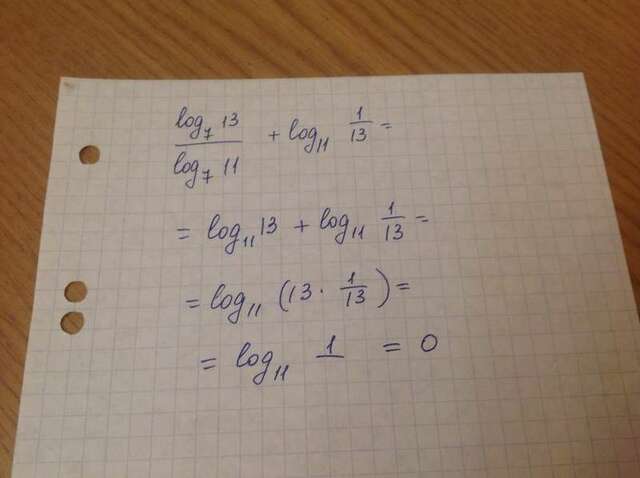 log₇ 13 / log₇ 11 + log₁₁ 1/13 =
= log₁₁ 13 + log₁₁ 1/13 =
= log₁₁ (13 · 1/13) =
= log₁₁ 1 = 0